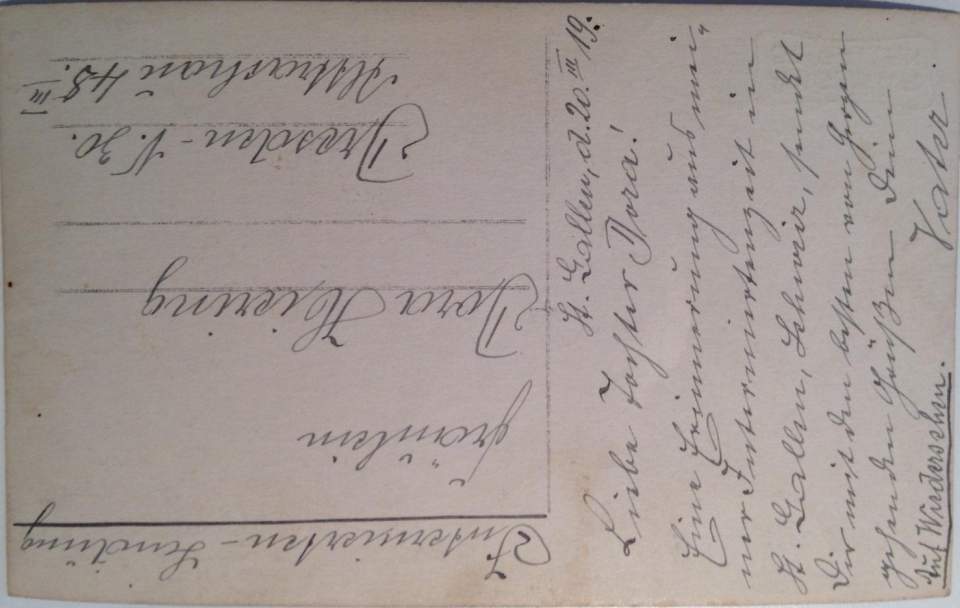 St. Gallen, d. 20. III 19.
Liebe Tochter Dora!
Eine Erinnerung aus mei„
ner Interniertenzeit in
St. Gallen, Schweiz, sendet
Dir mit den besten von Herzen
gehenden Grüßen Dein
Vater.
Auf Wiedersehen.
Internierten-Sendung
Fräulein
Dora
Dresden-N. 30.
48. III